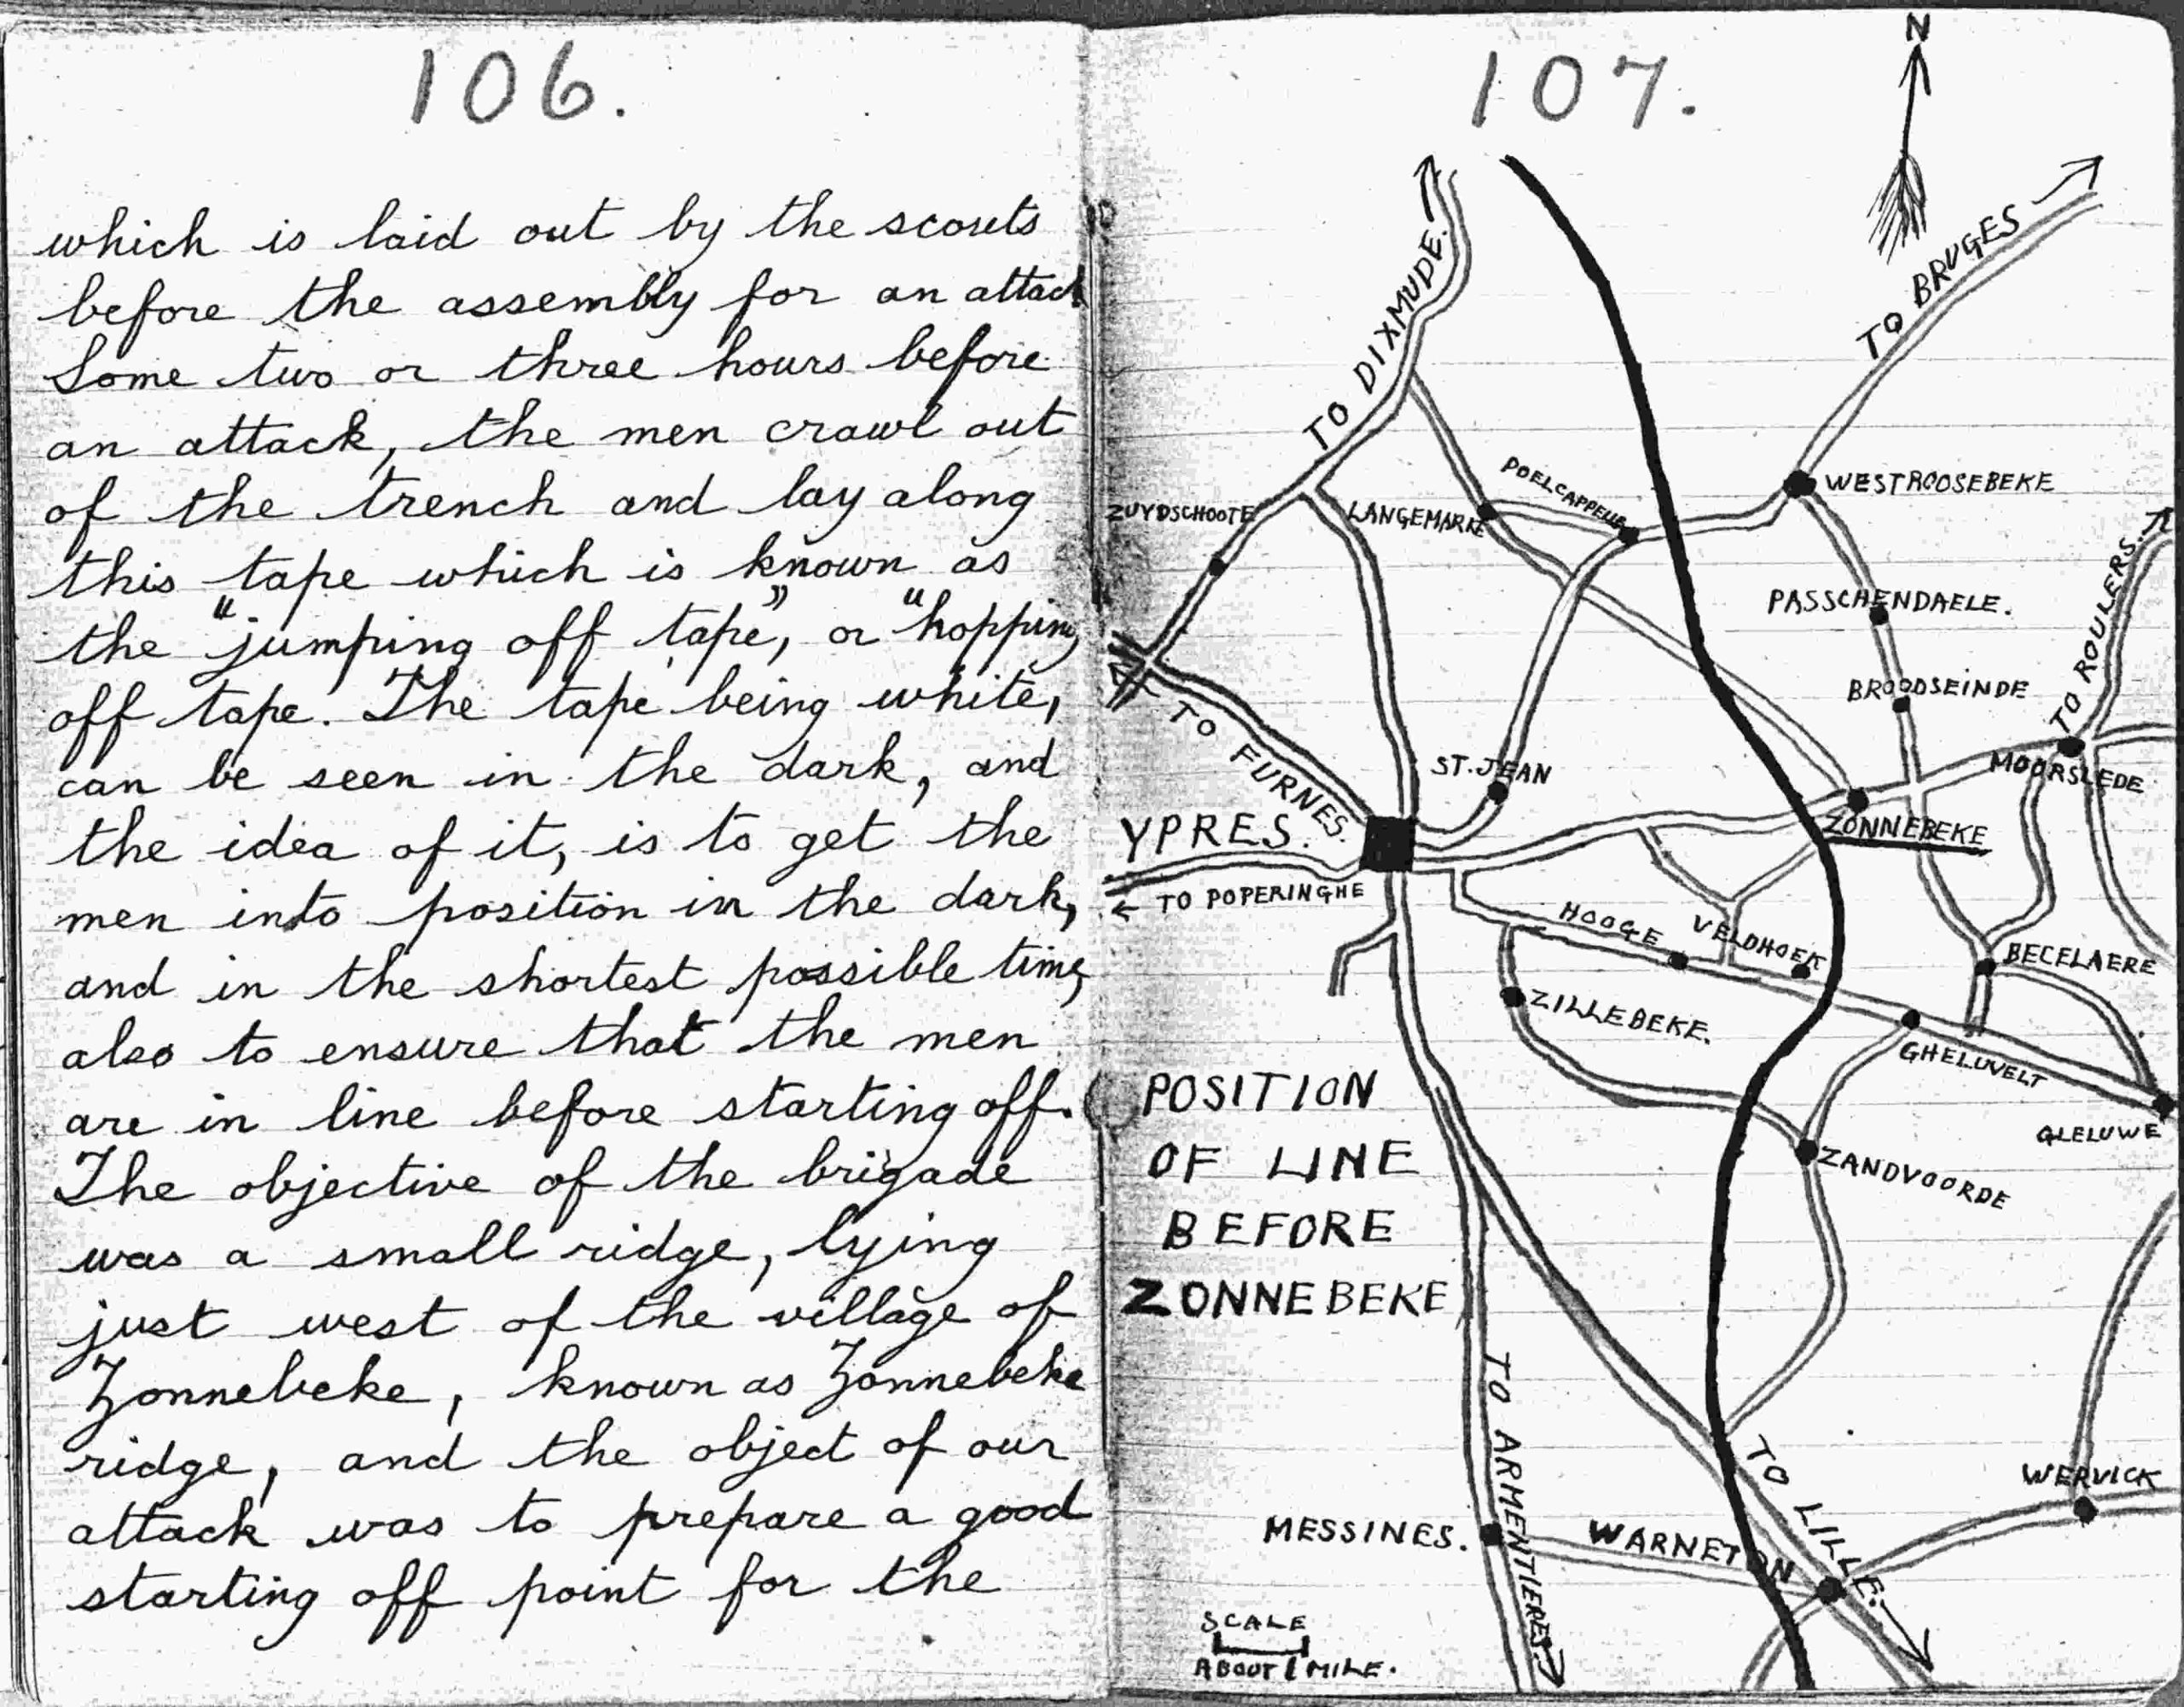 106.
which is laid out by the scouts
before the assembly for an attack
Some two or three hours before
an attack, the men crawl out
of the trench and lay along
this tape which is known as
the "jumping off tape", or "hopping
off tape. The tape being white,
can be seen in the dark, and
the idea of it, is to get the
men into position in the dark,
and in the shortest possible time,
also to ensure that the men
are in line before starting off.
The objective of the brigade
was a small ridge, lying
just west of the village of
Zonnebeke, known as Zonnebeke
ridge, and the object of our
attack was to prepare a good
starting off point for the
107.
N
TO DIXMUDE.
TO BRUGES
ZUYDSCHOOTE
LANGEMARKE
POELCAPPELLE
WESTROOSEBEKE
PASSCHENDAELE.
TO ROULERS.
BROODSEINDE
TO FURNES.
ST. JEAN
MOORSLEDE
YPRES.
ZONNEBEKE
TO POPERINGHE
HOOGE
VELDHOEK
BECELAERE
ZILLEBEKE.
GHELUVELT
GLELUWE
ZANDVOORDE
POSITION
OF LINE
BEFORE
ZONNEBEKE
TO ARMENTIERES.
TO LILLE.
WERVICK
MESSINES.
WARNETON
SCALE
ABOUT 1 MILE.